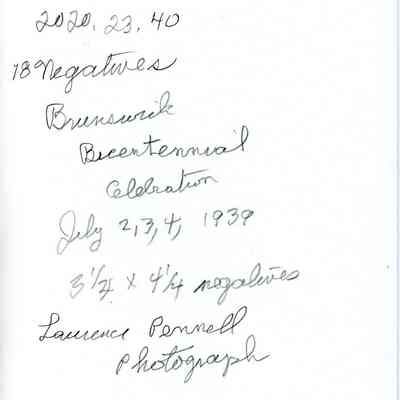 2020.23.40
78 Negatives
Brunswick
Bicentennial
Celebration
July 2, 3, 4, 1939
3 1/4 x 4 1/4 negatives
Laurence Pennell
Photograph